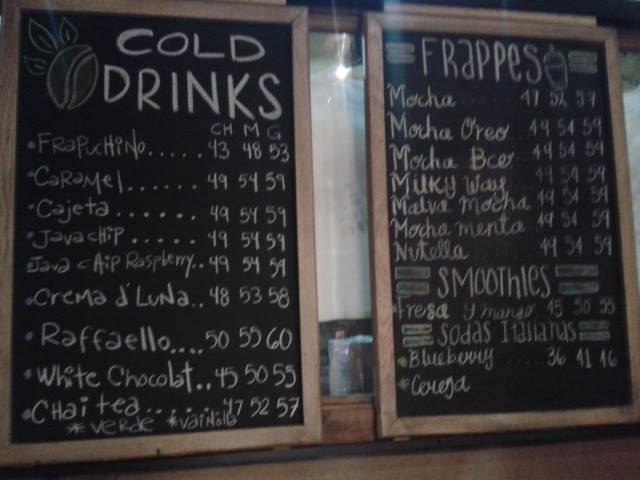 COLD
DRINKS
CH M G
• FRAPUCHINO..... 43 48 53
• CARAMEL....... 49 54 59
• Cajeta....... 49 54 59
• JAVACHIP...... 49 54 59
Java CHIP Raspberry.. 49 54 59
• CREMA d'LUNA.. 48 53 58
• Raffaello.... 50 55 60
• White Chocolat.. 45 50 55
• CHAI tea....... 47 52 57
*VERDE *VAINILLA
FRAPPES
Mocha ..... 47 52 57
Mocha Oreo.. 49 54 59
Mocha 49 54 59
Milky Way 49 54 59
Malva Mocha 49 54 59
Mocha menta 49 54 59
Nutella 49 54 59
SMOOTHIES
Fresa y mango. 45 50 55
SODAS ITALIANAS
• Blueberry ..... 36 41 46
• Cereza